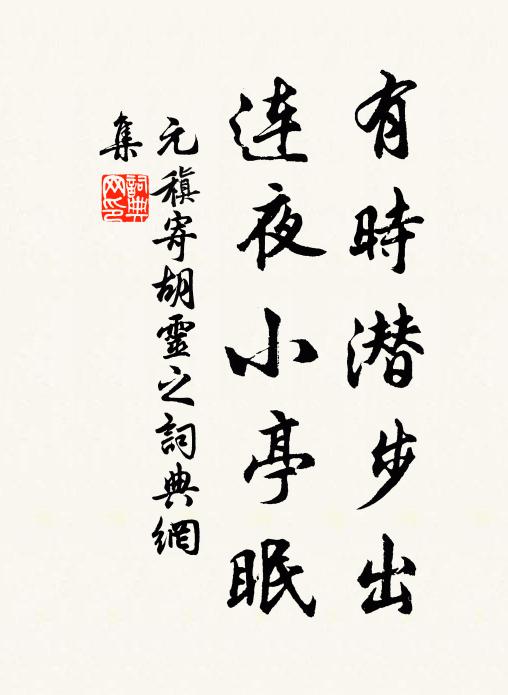 有時潜步出
连夜小亭眠
元稹寄胡靈之詞典網
集
詞典网印